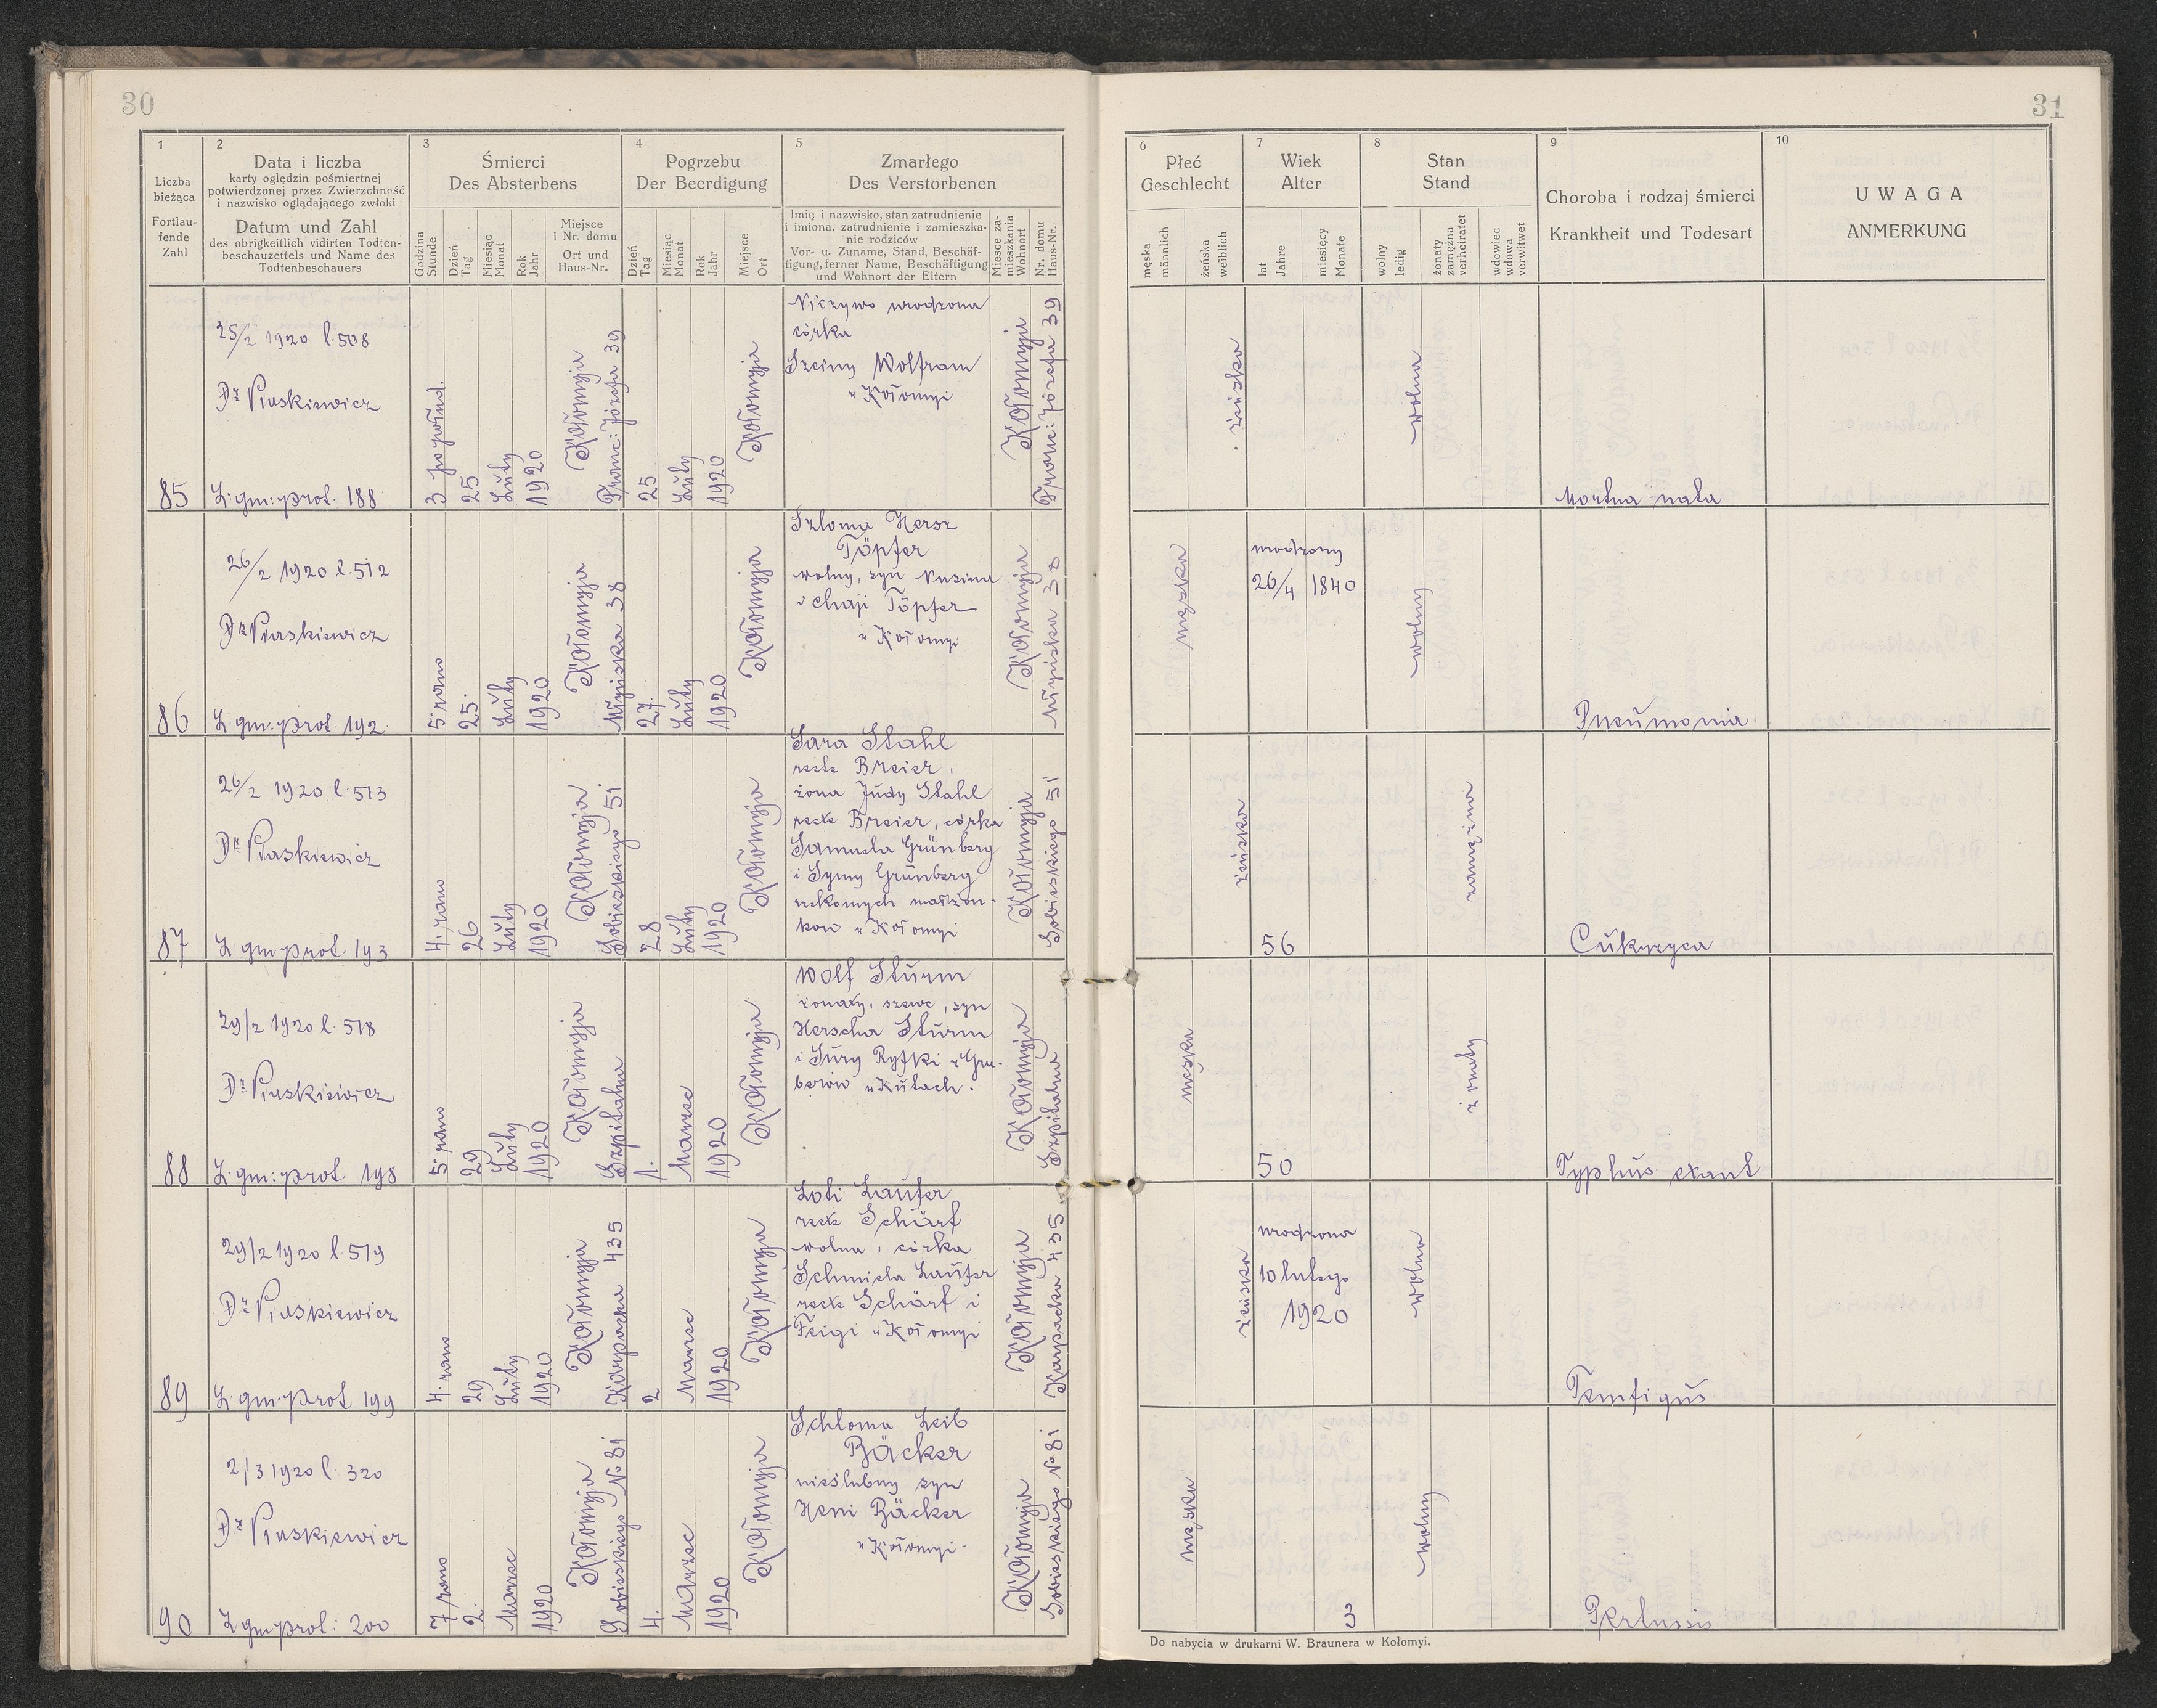 30
1
Liczba
bieżąca
Fortlau-
fende
Zahl
2
Data i liczba
karty oględzin pośmiertnej
potwierdzonej przez Zwierzchność
i nazwisko oglądającego zwłoki
Datum und Zahl
des obrigkeitlich vidirten Todten-
beschauzettels und Name des
Todtenbeschauers
3
Śmierci
Des Absterbens
Godzina
Stunde
Dzień
Tag
Miesiąc
Monat
Rok
Jahr
Miejsce
i Nr. domu
Ort und
Haus-Nr.
4
Pogrzebu
Der Beerdigung
Dzień
Tag
Miesiąc
Monat
Rok
Jahr
Miejsce
Ort
5
Zmarłego
Des Verstorbenen
Imię i nazwisko, stan zatrudnienie
i imiona, zatrudnienie i zamieszka-
nie rodziców
Vor- u. Zuname, Stand, Beschäf-
tigung, ferner Name, Beschäftigung
und Wohnort der Eltern
Miesce za-
mieszkania
Wohnort
Nr. domu
Haus-Nr.
85
25/2 1920 l. 508
Dr Piaskiewicz
L: gm: prot. 188
3 po połud.
25
Luty
1920
Kołomyja
Franc: Józefa 39
25
Luty
1920
Kołomyja
Nieżywo urodzona
córka
Sceiny Wolfram
w Kołomyi
Kołomyja
Franc: Józefa 39
86
26/2 1920 l. 512
Dr Piaskiewicz
L. gm: prot. 192
5 rano
25.
Luty
1920
Kołomyja
38
27.
Luty
1920
Kołomyja
Szloma Hersz
Töpfer
wolny, syn Nusina
i Chaji Töpfer
w Kołomyi
Kołomyja
38
87
26/2 1920 l. 513
Dr Piaskiewicz
L gm prot 193
4. rano
26
Luty
1920
Kołomyja
Sobieskiego 51
28
Luty
1920
Kołomyja
Sara Stahl
recte Breier,
żona Judy Stahl
recte Breier, córka
Samuela Grünberg
i Symy Grünberg
rzekomych małżon-
kow w Kołomyi
Kołomyja
Sobieskiego 51
88
29/2 1920 l. 518
Dr Piaskiewicz
L: gm: prot. 198
5 rano
29
Luty
1920
Kołomyja
Szpitalna
1.
Marzec
1920
Kołomyja
Wolf Sturm
żonaty, szewc, syn
Herscha Sturm
i Sury Ryfki z Gru-
berów w Kutach.
Kołomyja
Szpitalna
89
29/2 1920 l. 519
Dr Piaskiewicz
L: gm: prot 199
4. rano
29
Luty
1920
Kołomyja
Karpacka 435
2
Marzec
1920
Kołomyja
Loti Laufer
recte Schärf
wolna, córka
Schmiela Laufer
recte Schärf i
Feigi w Kołomyi
Kołomyja
Karpacka 435
90
2/3 1920 l. 320
Dr Piaskiewicz
L gm prol: 200
7 rano
2.
Marzec
1920
Kołomyja
Sobieskiego No 81
4.
Marzec
1920
Kołomyja
Schloma Leib
Bäcker
nieślubny syn
Heni Bäcker
w Kołomyi
Kołomyja
Sobieskiego No 81
31
6
Płeć
Geschlecht
męska
männlich
żeńska
weiblich
7
Wiek
Alter
lat
Jahre
miesięcy
Monate
8
Stan
Stand
wolny
ledig
żonaty
zamężna
verheiratet
wdowiec
wdowa
verwitwet
9
Choroba i rodzaj śmierci
Krankheit und Todesart
10
UWAGA
ANMERKUNG
żeńska
wolna
Mortua nata
męska
urodzony
26/4 1840
wolny
Pneumonia
żeńska
56
zamężna
Cukrzyca
męska
50
żonaty
Typhus exant
żeńska
urodzona
10 lutego
1920
wolna
Pemfigus
męska
3
wolny
Pertussis
Do nabycia w drukarni W. Braunera w Kołomyi.